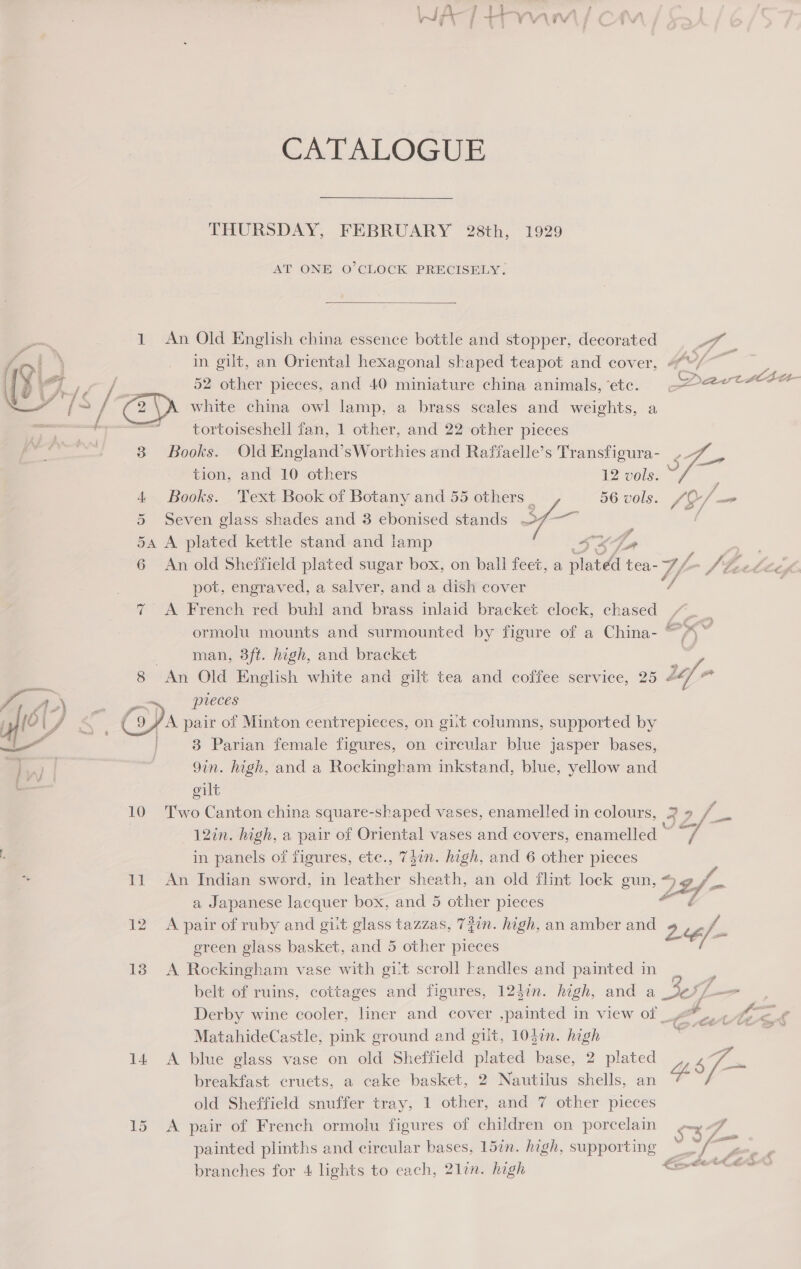 CATALOGUE
THURSDAY, FEBRUARY 28th, 1929
AT ONE O'CLOCK PRECISELY.
1 An Old English china essence bottle and stopper, decorated
in gilt, an Oriental hexagonal shaped teapot and cover,
52 other pieces, and 40 miniature china animals, etc.
2 A white china owl lamp, a brass scales and weights, a
tortoiseshell fan, 1 other, and 22 other pieces
3 Books. Old England'sWorthies and Raffaelle's Transfigura-
tion, and 10 others 12 vols.
4 Books. Text Book of Botany and 55 others 56 vols. 10/-
5 Seven glass shades and 3 ebonised stands
5A A plated kettle stand and lamp
6 An old Sheffield plated sugar box, on ball feet, a plated tea-
pot, engraved, a salver, and a dish cover
7 A French red buhl and brass inlaid bracket clock, chased
ormolu mounts and surmounted by figure of a China-
man, 3ft. high, and bracket
8 An Old English white and gilt tea and coffee service, 25
pieces
9 A pair of Minton centrepieces, on gilt columns, supported by
3 Parian female figures, on circular blue jasper bases,
9in. high, and a Rockingham inkstand, blue, yellow and
gilt
10 Two Canton china square-shaped vases, enamelled in colours,
12in. high, a pair of Oriental vases and covers, enamelled
in panels of figures, etc., 7½in. high, and 6 other pieces
11 An Indian sword, in leather sheath, an old flint lock gun,
a Japanese lacquer box, and 5 other pieces
12 A pair of ruby and gilt glass tazzas, 7¾in. high, an amber and
green glass basket, and 5 other pieces
13 A Rockingham vase with gilt scroll handles and painted in
belt of ruins, cottages and figures, 12½in. high, and a
Derby wine cooler, liner and cover ,painted in view of
MatahideCastle, pink ground and gilt, 10½in. high
14 A blue glass vase on old Sheffield plated base, 2 plated
breakfast cruets, a cake basket, 2 Nautilus shells, an
old Sheffield snuffer tray, 1 other, and 7 other pieces
15 A pair of French ormolu figures of children on porcelain
painted plinths and circular bases, 15in. high, supporting
branches for 4 lights to each, 21in. high